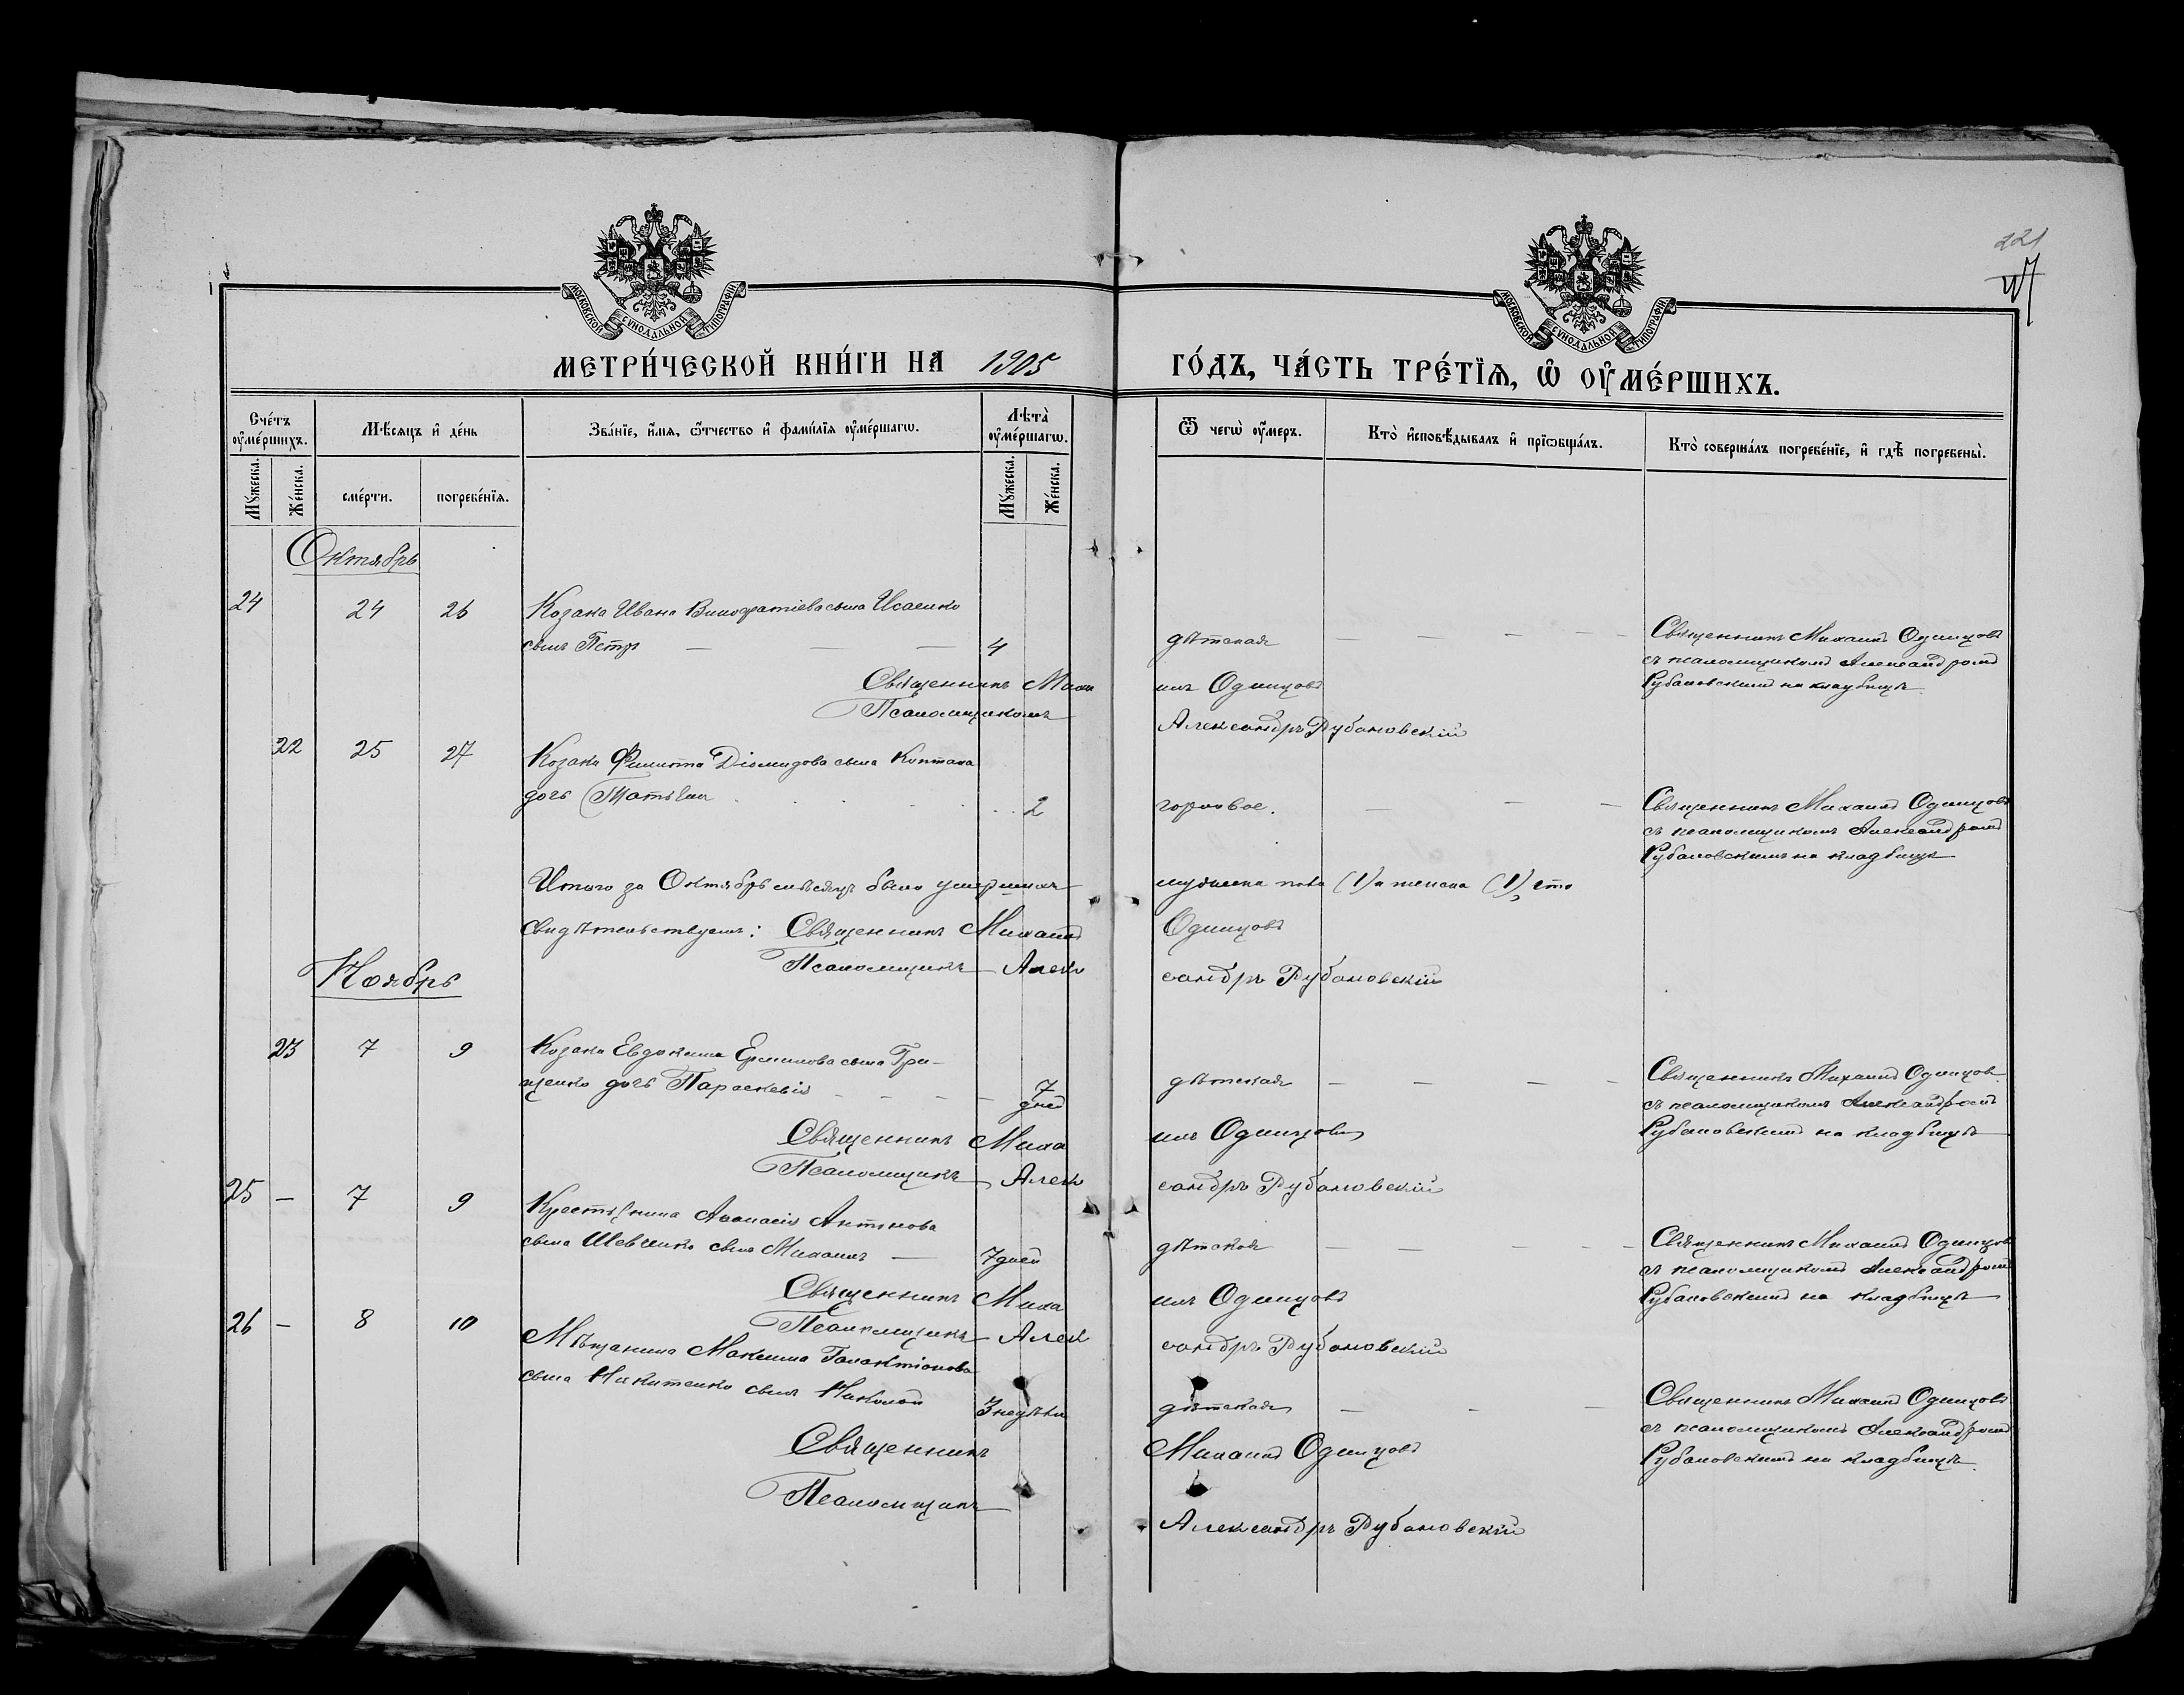 МОСКОВСКОЙ СУНОДАЛЬНОЙ ТИПОГРАФІИ
МОСКОВСКОЙ СУНОДАЛЬНОЙ ТИПОГРАФІИ
221
МЕТРИ́ЧЕСКОЙ КНИ́ГИ НА 1905 ГО́ДЪ, ЧА́СТЬ ТРЕ́ТЇѦ, Ѡ҆ ОУ҆МЕ́РШИХЪ.
Сче́тъ оу҆ме́ршихъ.
Мѣ́сяцъ и҆ де́нь
Зва́нїе, и҆́мя, ѻ҆́тчество и҆ фами́лїя оу҆ме́ршагѡ.
Лѣ́та̀ оу҆ме́ршагѡ.
Ѿ чегѡ̀ оу҆́меръ.
Кто̀ и҆сповѣ́дывалъ и҆ прїѡбща́лъ.
Кто̀ соверша́лъ погребе́нїе, и҆ гдѣ̀ погребены̀.
Мꙋ́жеска.
Же́нска.
сме́рти.
погребе́нїѧ.
Мꙋ́жеска.
Же́нска.
Октябрь
24 24 26 Козака Ивана Виногратіева сына Исаенко
сынъ Петръ — — — 4 дѣтская — — — — Священникъ Михаилъ Одинцовъ
съ псаломщикомъ Александромъ
Рубановскимъ на кладбищѣ
Священникъ Михаилъ Одинцовъ
Псаломщикомъ Александръ Рубановскій
22 25 27 Козака Филиппа Діомидова сына Коптана
дочь Татьяна 2 горловое. — — — Священникъ Михаилъ Одинцовъ
съ псаломщикомъ Александромъ
Рубановскимъ на кладбищѣ
Итого за Октябрь мѣсяцъ было умершихъ мужеска пола (1) и женска (1), что
свидѣтельствуемъ: Священникъ Михаилъ Одинцовъ
Псаломщикъ Александръ Рубановскій
Ноябрь
23 7 9 Козака Евдокима Ермилова сына Гри-
щенко дочь Параскевія — — — — 7 дней дѣтская — — — — Священникъ Михаилъ Одинцовъ
съ псаломщикомъ Александромъ
Рубановскимъ на кладбищѣ
Священникъ Михаилъ Одинцовъ
Псаломщикъ Александръ Рубановскій
25 — 7 9 Крестьянина Аѳанасія Антонова
сына Шевченко сынъ Михаилъ — 7 дней дѣтская — — — — Священникъ Михаилъ Одинцовъ
съ псаломщикомъ Александромъ
Рубановскимъ на кладбищѣ
Священникъ Михаилъ Одинцовъ
Псаломщикъ Александръ Рубановскій
26 — 8 10 Мѣщанина Максима Галактіонова
сына Никитенко сынъ Николай 3 недѣли дѣтская — — — Священникъ Михаилъ Одинцовъ
съ псаломщикомъ Александромъ
Рубановскимъ на кладбищѣ
Священникъ Михаилъ Одинцовъ
Псаломщикъ Александръ Рубановскій